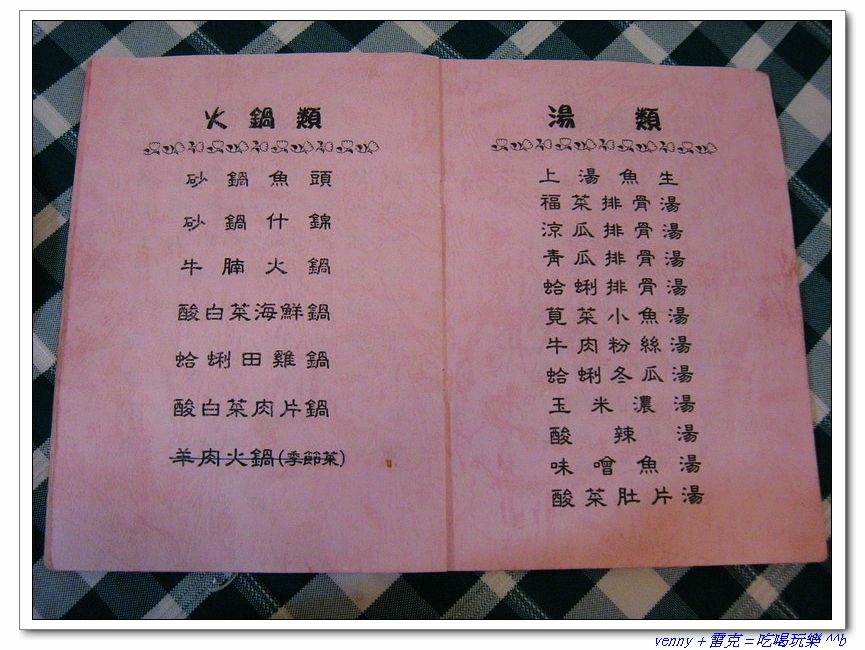 火鍋類
砂鍋魚頭
砂鍋什錦
牛腩火鍋
酸白菜海鮮鍋
蛤蜊田雞鍋
酸白菜肉片鍋
羊肉火鍋(季節菜)
湯類
上湯魚生
福菜排骨湯
涼瓜排骨湯
青瓜排骨湯
蛤蜊排骨湯
莧菜小魚湯
牛肉粉絲湯
蛤蜊冬瓜湯
玉米濃湯
酸辣湯
味噌魚湯
酸菜肚片湯
venny + 雷克 = 吃喝玩樂 ^^b